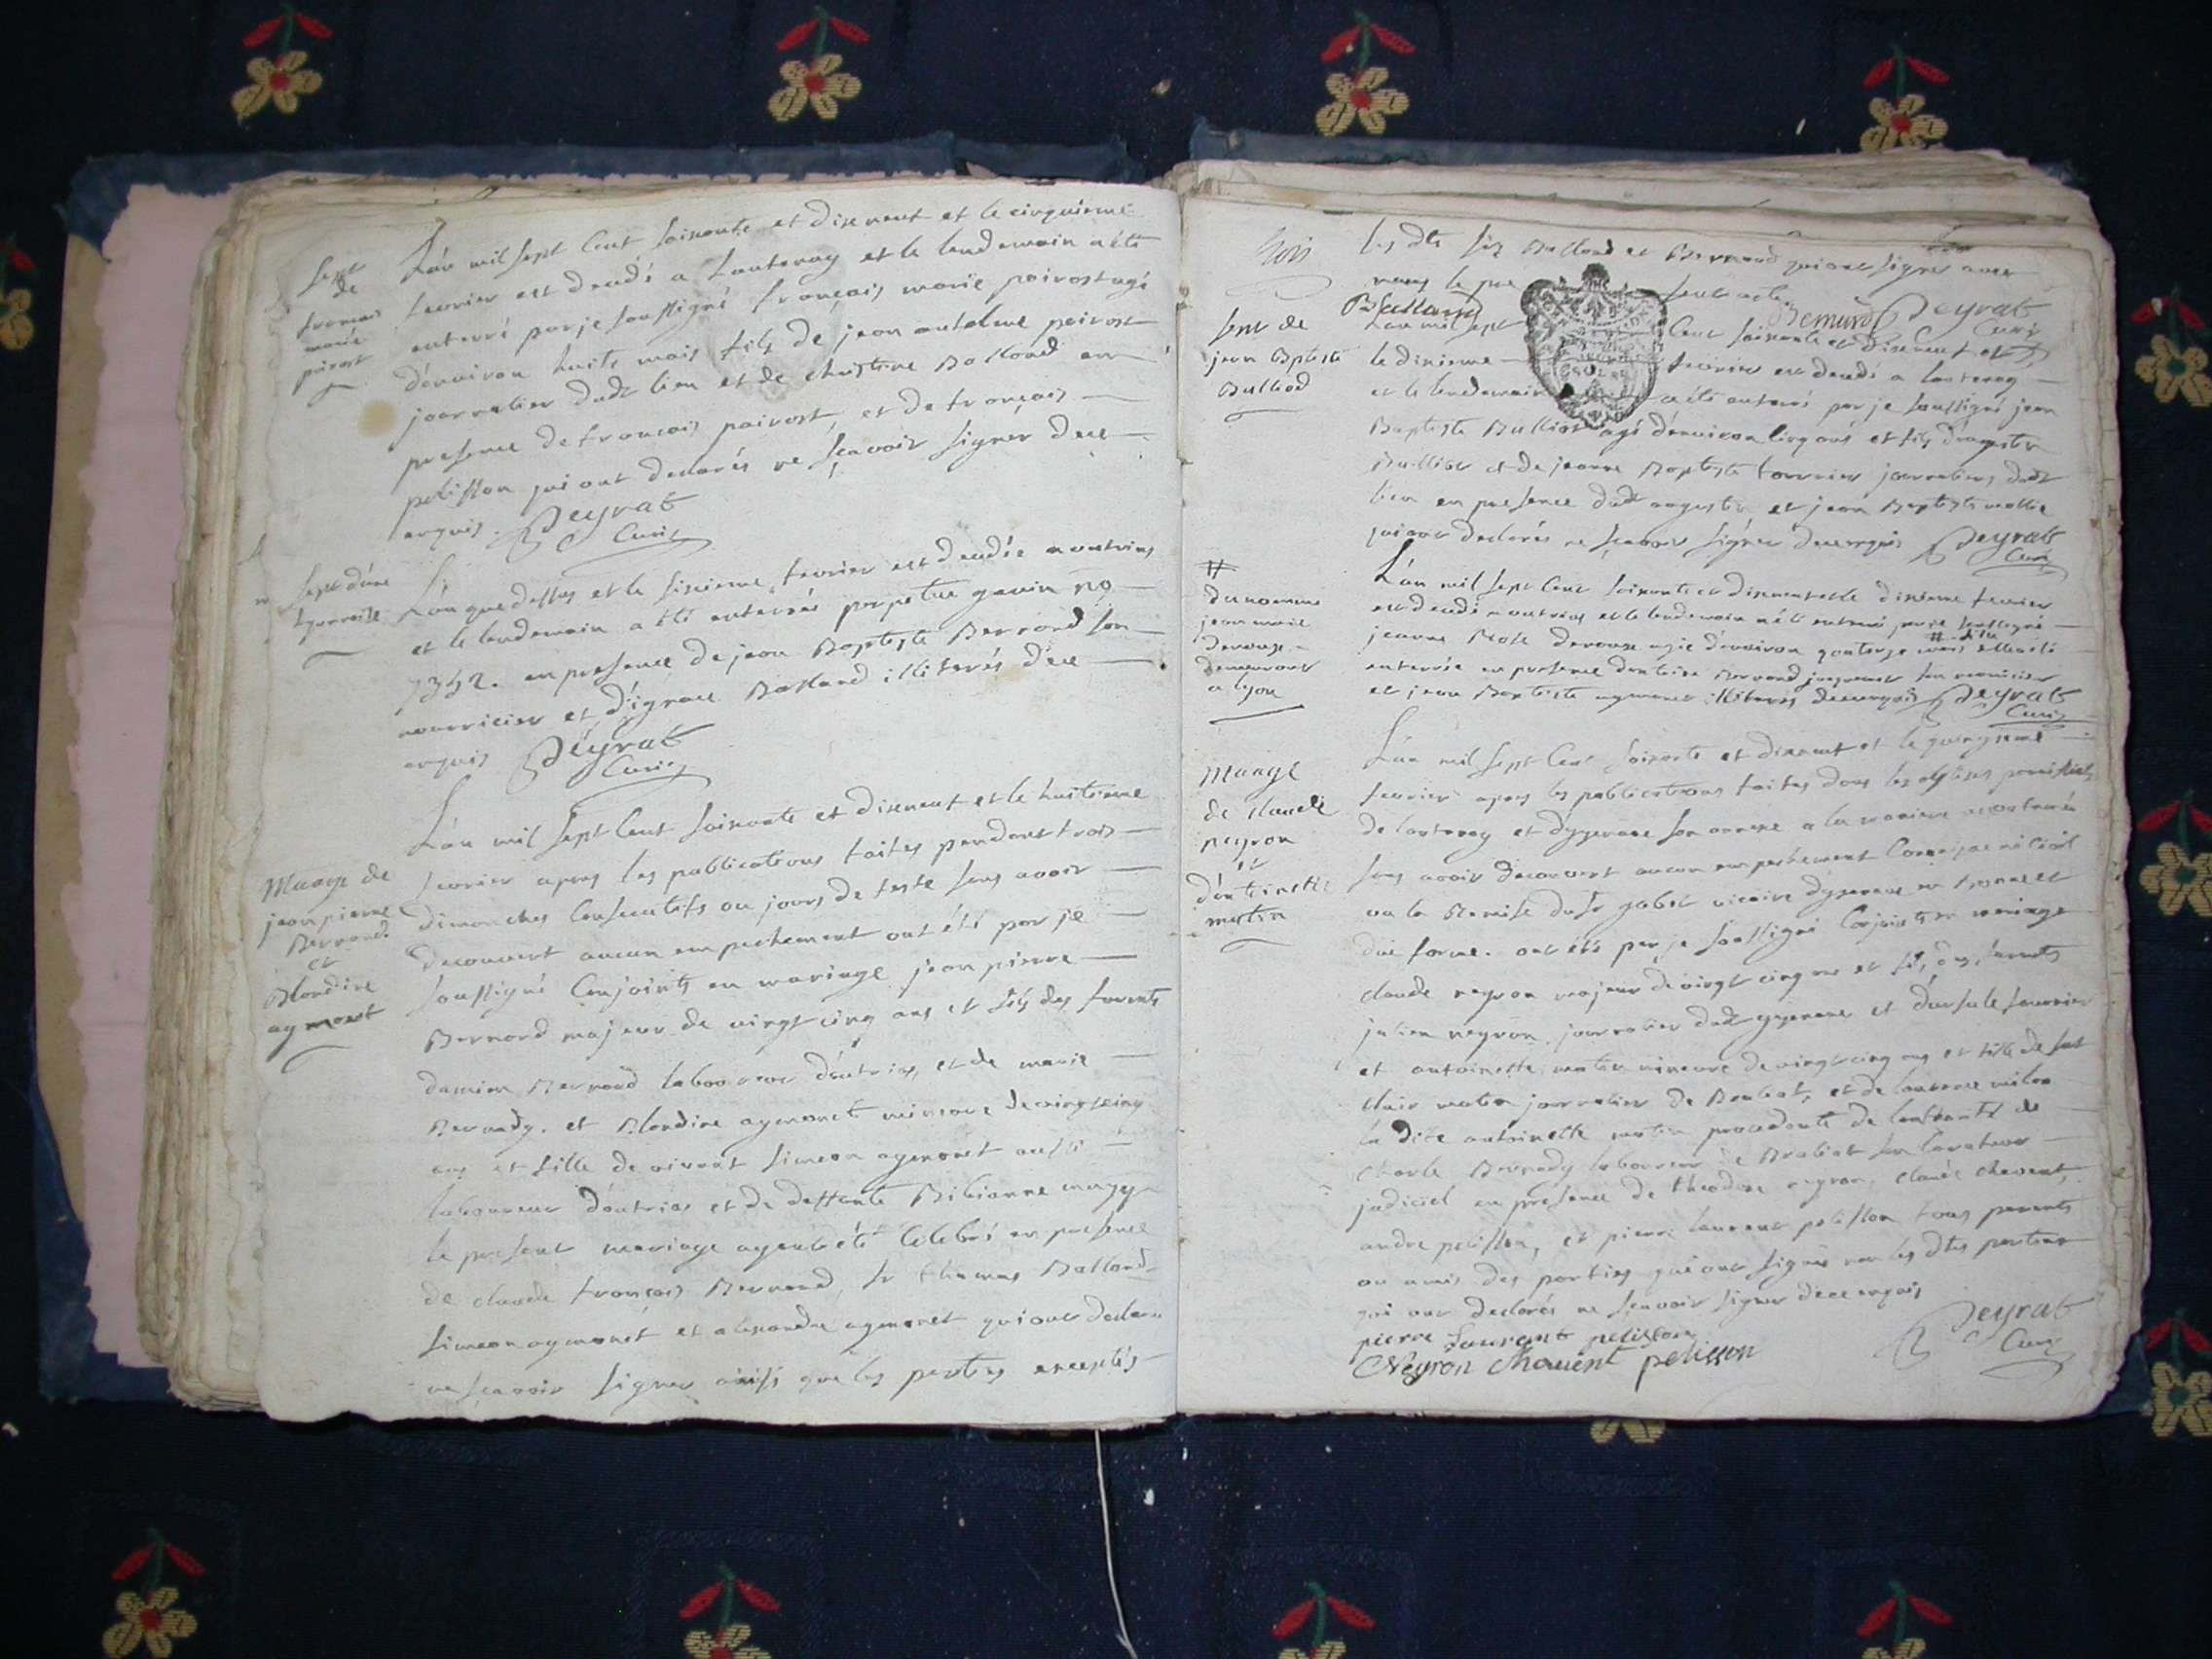 Sept
de
francois
marie
pairost
L'an mil sept Cent soixante et dixneuf et le cinquieme
fevrier est decedé a Lantenay et le lendemain a eté
enterré par je soussigné françois marie pairost agé
d'environ huits mois fils de jean antelme pairost
journalier dudt lieu et de christine Balland en
presence de francois pairost, et de françois
pelisson qui ont declarés ne sçavoir signer dece
enquis. Peyrat
Curé
Sept d'une
L'an que dessus et le sixieme fevrier est decedée a outrias
et le lendemain a eté enterrée perpetue gauin no
7342. en presence de jean Baptiste Bernard son
nourricier et d'ignace Balland illiterés dece
enquis Peyrat
Curé
Mariage de
jean pierre
Bernard
et
Blandine
aymonet
L'an mil sept Cent soixante et dixneuf et le huitieme
fevrier apres les publications faites pendant trois
dimanches Consecutifs ou jours de feste sans avoir
decouvert aucun empechement ont été par je
soussigné Conjoints en mariage jean pierre
Bernard majeur de vingt cinq ans et fils des
damien Bernard laboureur d'outrias, et de marie
et Blandine aymonet mineure de vingt cinq
ans et fille de vivant simeon aymonet aussi
laboureur d'outrias et de deffunte Bibianne
le present mariage ayant été Celebré en presence
de claude françois Bernard, sr thomas Balland
simeon aymonet et alexandre aymonet qui ont declaré
ne sçavoir signer ainsi que les parties exceptés
trois
les dts srs Balland et Bernard qui ont signés avec
nous le present acte
BBalland Bernard Peyrat
Curé
Sept de
jean Bptiste
Bulliod
L'an mil sept Cent soixante et dixneuf et
le dixieme fevrier est decedé a lantenay
et le lendemain a été enterré par je soussigné jean
Baptiste Bulliod agé d'environ Cinq ans et fils d'augustin
Bulliod et de jeanne Baptiste tournier journaliers dudt
lieu en presence dudt augustin et jean Baptiste
qui ont declarés ne sçavoir signer dece enquis Peyrat
Curé
#
du nomme
jean marie
demeurant
a lyon
L'an mil sept Cent soixante et dixneuf et le dixieme fevrier
est decedé a outrias et le lendemain a été enterré par je soussigné
jeanne agée d'environ quatorze mois
enterrée en presence d'antoine Bernard son nourricier
et jean Baptiste aymonet illiterés dece enquis Peyrat
Curé
Mariage
de claude
neyron
et
d'antoinette
matin
L'an mil sept Cent soixante et dixneuf et le quinzieme
fevrier apres les publications faites dans les eglises
de lantenay et d'izenave son annexe a la maniere accoutumée
sans avoir decouvert aucun empechement Canonique ni Civil
vu la Remise du sr vicaire d'izenave en bonne et
due forme. ont été par je soussigné Conjoints en mariage
claude neyron majeur de vingt cinq ans et fils
julien neyron journalier dudt izenave et d'ursule
et antoinette matin mineure de vingt cinq ans et fille de
clair matin journalier de et de laurence
la dite antoinette matin procedante de l'authorité de
charle laboureur de son Curateur
judiciel en presence de theodore neyron, claude chavent,
andre pelisson, et pierre laurent pelisson tous parents
ou amis des parties qui ont signés non les dtes parties
qui ont declarés ne sçavoir signer dece enquis
Peyrat
Curé
pierre Laurent pelisson
CNeyron Chavent pelisson